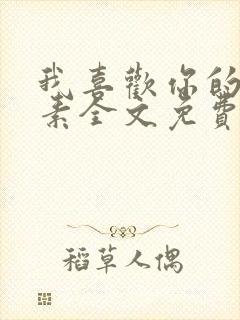 我喜歡你的
素全文免費
稻草人偶